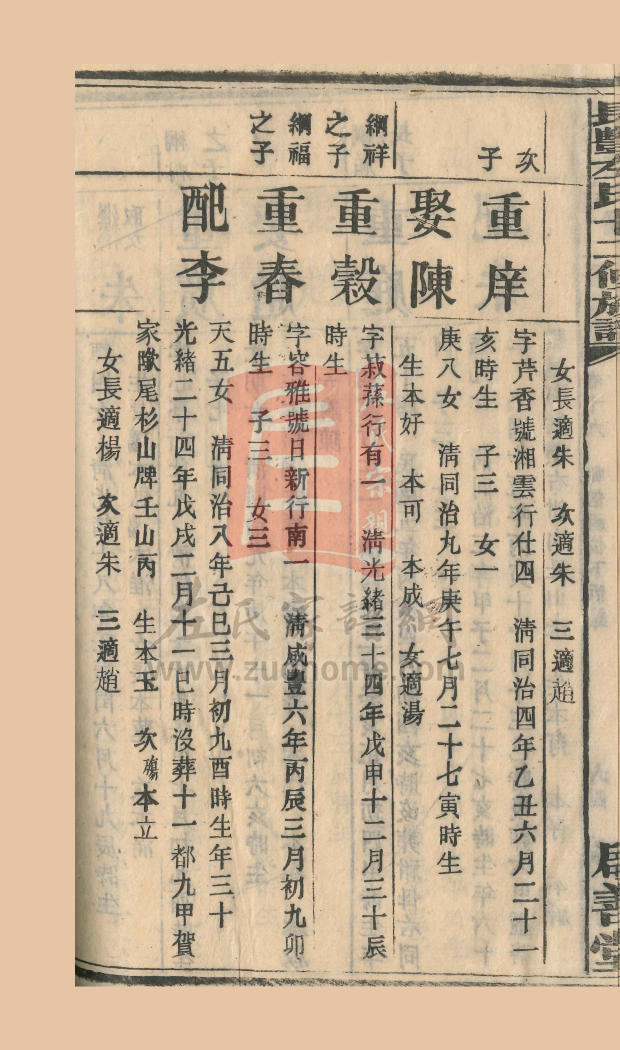 長豐左氏十二修族譜
啟善堂
女長適朱 次適朱 三適趙
次子
重庠
字芹香號湘雲行仕四 清同治四年乙丑六月二十一
亥時生 子三 女一
娶陳
庚八女 清同治九年庚午七月二十七寅時生
生本好 本可 本成 女適湯
綱祥之子
重穀
字菽蓀行有一 清光緒三十四年戊申十二月三十辰
時生
綱福之子
重春
字容雅號日新行南一 清咸豐六年丙辰三月初九卯
時生 子三 女三
配李
天五女 清同治八年己巳三月初九酉時生年三十
光緒二十四年戊戌二月十一巳時沒葬十一都九甲賀
家隊尾杉山牌壬山丙 生本玉 次殤 本立
女長適楊 次適朱 三適趙
左氏家譜網
www.zuohome.com